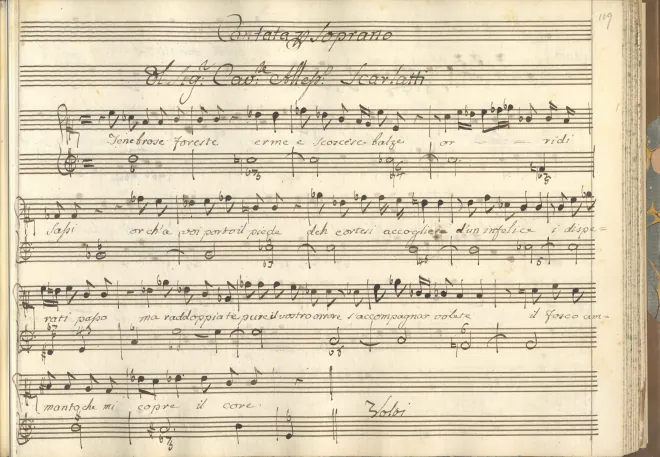 109
Cantata p Soprano
Del Sig.r Cav.re Aless.o Scarlatti
Tenebrose foreste erme e scoscese balze or - - - ridi
sassi or ch'a voi porto il piede deh cortesi accogliete d'un infelice i dispe-
rati passi ma raddoppiate pure il vostro orrore s'accompagnar volete il fosco am-
manto che mi copre il core.
Volti